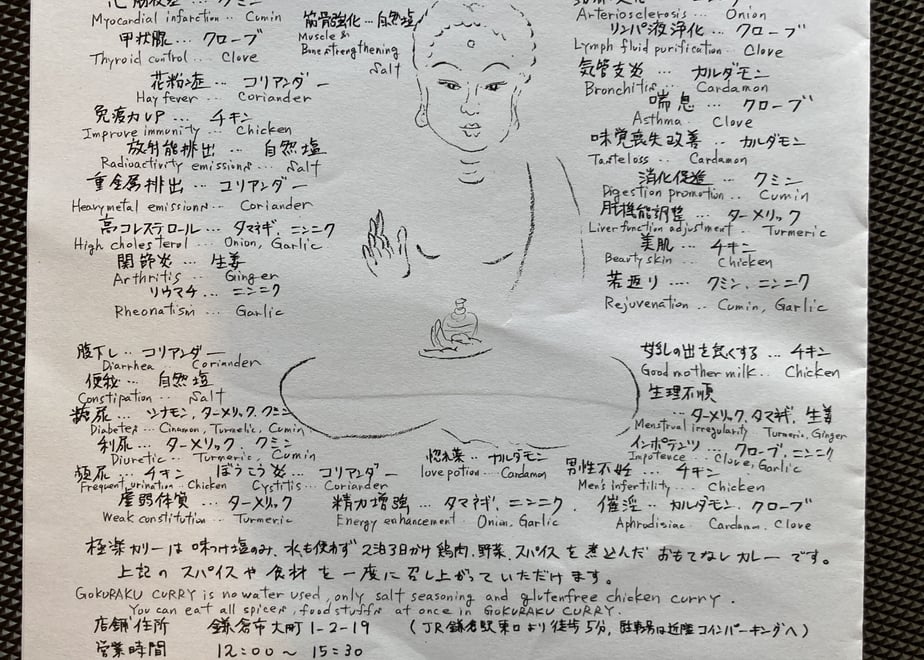 Myocardial infarction ‥ Cumin
甲状腺 … クローブ
Thyroid control ‥ Clove
花粉症 … コリアンダー
Hay fever ‥ Coriander
免疫力UP … チキン
Improve immunity … Chicken
放射能排出 … 自然塩
Radioactivity emissions … Salt
重金属排出 … コリアンダー
Heavymetal emissions ‥ Coriander
高コレステロール … タマネギ、ニンニク
High cholesterol … Onion, Garlic
関節炎 … 生姜
Arthritis … Ginger
リウマチ … ニンニク
Rheonatism … Garlic
筋骨強化…自然塩
Muscle &
Bone strengthening
Salt
Arteriosclerosis … Onion
リンパ液浄化 … クローブ
Lymph fluid purification … Clove
気管支炎 … カルダモン
Bronchitis … Cardamon
喘息 … クローブ
Asthma … Clove
味覚喪失改善 ‥ カルダモン
Tasteloss ‥ Cardamon
消化促進 … クミン
Digestion promotion … Cumin
肝機能調整 … ターメリック
Liver function adjustment ‥ Turmeric
美肌 … チキン
Beauty skin … Chicken
若返り … クミン、ニンニク
Rejuvenation … Cumin, Garlic
腹下し ‥ コリアンダー
Diarrhea Coriander
便秘 … 自然塩
Constipation … Salt
糖尿 … シナモン、ターメリック、クミン
Diabetes … Cinamon, Turmelic, Cumin
利尿 … ターメリック、クミン
Diuretic … Turmeric, Cumin
頻尿 … チキン
Frequent urination … Chicken
ぼうこう炎 … コリアンダー
Cystitis … Coriander
虚弱体質 … ターメリック
Weak constitution … Turmeric
惚れ薬 … カルダモン
love potion … Cardamon
精力増強 … タマネギ、ニンニク
Energy enhancement … Onion, Garlic
母乳の出を良くする … チキン
Good mother milk ‥ Chicken
生理不順
‥ターメリック、タマネギ、生姜
Menstrual irregularity Turmeric, Ginger
インポテンツ … クローブ、ニンニク
Impotence … Clove, Garlic
男性不妊 … チキン
Men's infertility … Chicken
催淫 ‥ カルダモン、クローブ
Aphrodisiac Cardamon, Clove
極楽カリーは 味つけ塩のみ、水も使わず 2泊3日かけ 鶏肉、野菜、スパイス を 煮込んだ おもてなし カレー です。
上記の スパイスや 食材 を 一度に召し上がって いただけます。
GOKURAKU CURRY is no water used, only salt seasoning and glutenfree chicken curry.
You can eat all spices, foodstuffs at once in GOKURAKU CURRY.
店舗住所 鎌倉市大町1-2-19 (JR鎌倉駅東口より徒歩5分、駐車場は近隣コインパーキングへ)
営業時間 12:00〜15:30